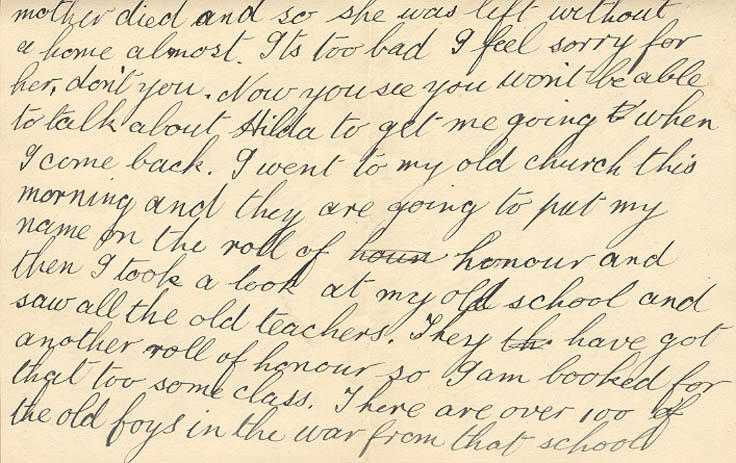 mother died and so she was left without
a home almost. Its too bad I feel sorry for
her, don't you. Now you see you won't be able
to talk about Hilda to get me going when
I come back. I went to my old church this
morning and they are going to put my
name on the roll of houn honour and
then I took a look at my old school and
saw all the old teachers. They th have got
another roll of honour so I am booked for
that too some class. There are over 100 of
the old boys in the war from that school